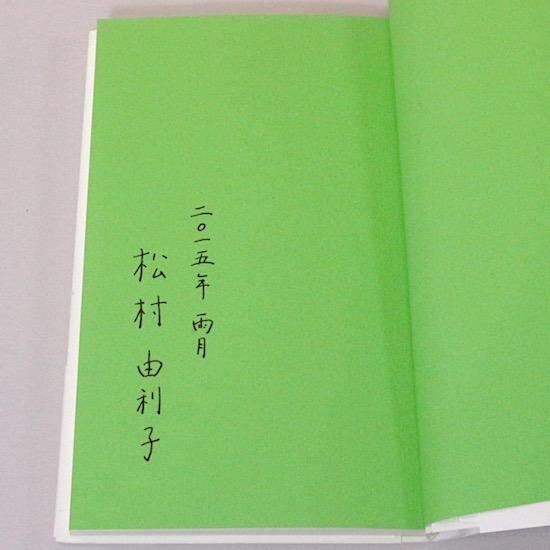 二〇一五年 雨月
松村 由利子